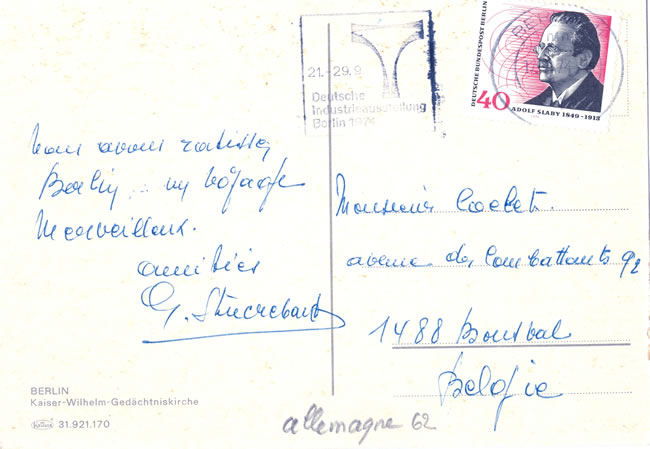 21.-29.9
Deutsche
Industrieausstellung
Berlin 1974
DEUTSCHE BUNDESPOST BERLIN
40
ADOLF SLABY 1849-1913
nous avons ratissé
Berlin... un voyage
merveilleux.
amitiés
G.
Monsieur
avenue des Combattants 92
1488 Bousval
Belgie
BERLIN
Kaiser-Wilhelm-Gedächtniskirche
31.921.170
allemagne 62